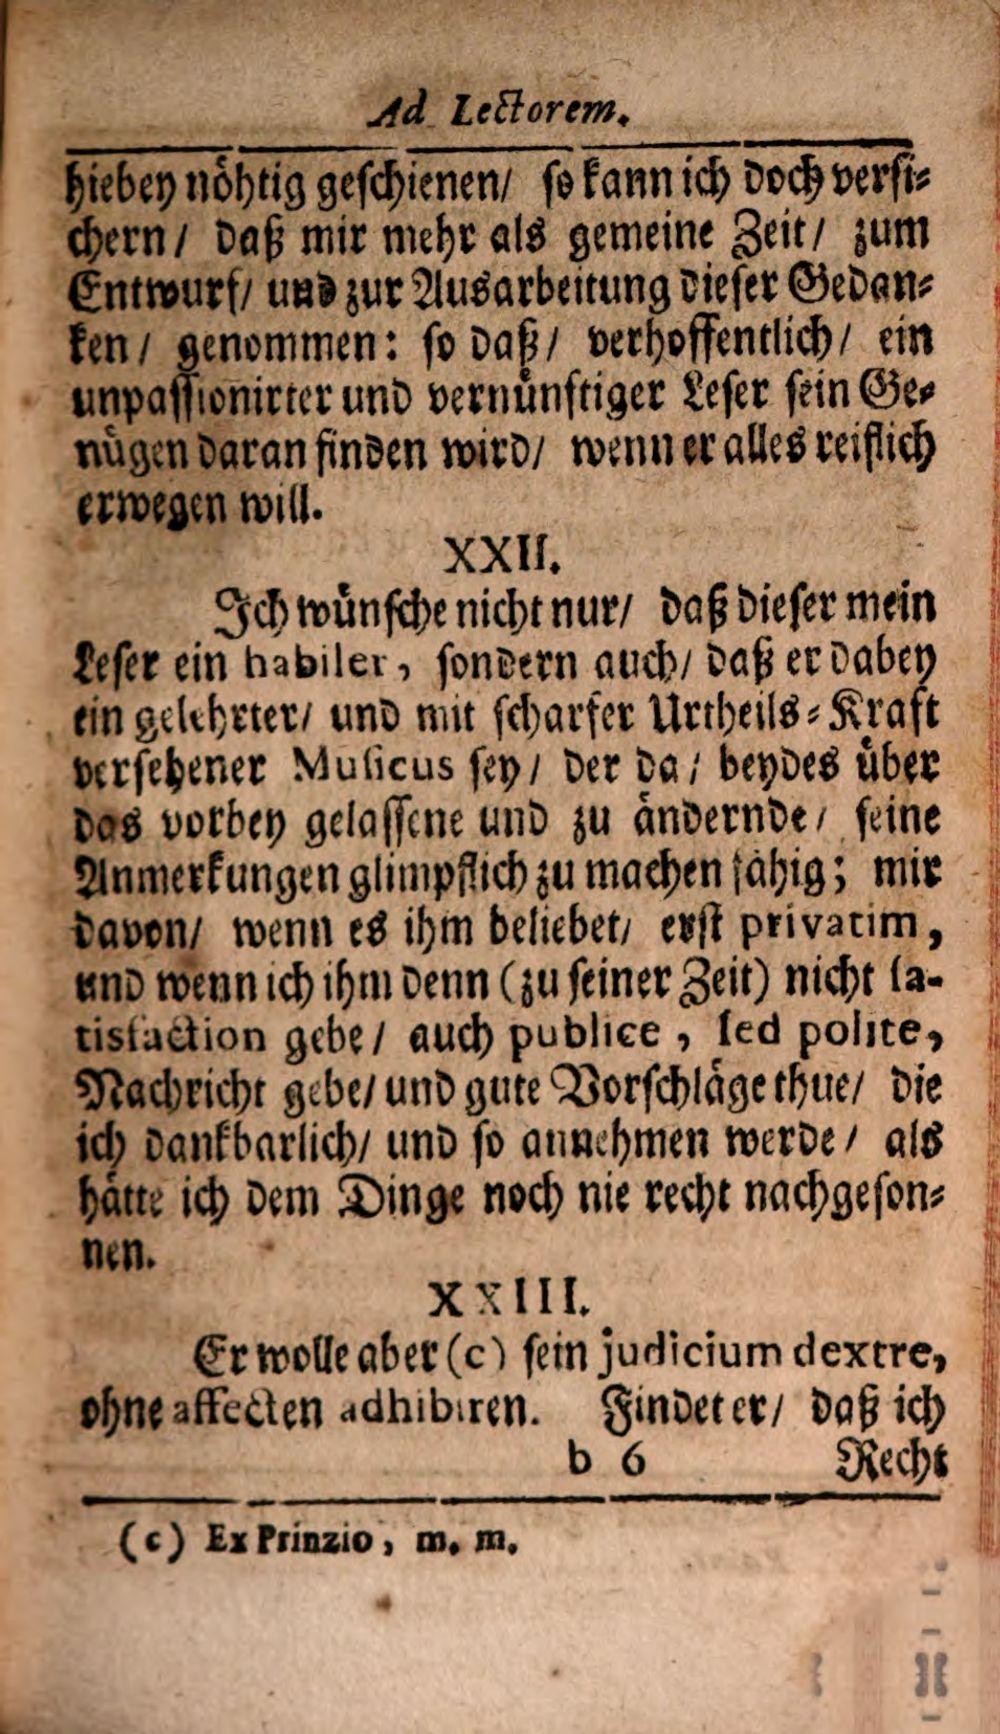 Ad Lectorem.
hiebey nöhtig geschienen/ so kann ich doch versi⸗
chern/ daß mir mehr als gemeine Zeit/ zum
Entwurf/ und zur Ausarbeitung dieser Gedan⸗
ken/ genommen: so daß/ verhoffentlich/ ein
unpassionirter und vernünftiger Leser sein Ge⸗
nügen daran finden wird/ wenn er alles reiflich
erwegen will.
XXII.
Ich wünsche nicht nur/ daß dieser mein
Leser ein habiler, sondern auch/ daß er dabey
ein gelehrter/ und mit scharfer Urtheils⸗Kraft
versehener Musicus sey/ der da/ beydes über
das vorbey gelassene und zu ändernde/ seine
Anmerkungen glimpflich zu machen fähig; mir
davon/ wenn es ihm beliebet/ erst privatim,
und wenn ich ihm denn (zu seiner Zeit) nicht sa-
tisfaction gebe/ auch publice, sed polite,
Nachricht gebe/ und gute Vorschläge thue/ die
ich dankbarlich/ und so annehmen werde/ als
hätte ich dem Dinge noch nie recht nachgeson⸗
nen.
XXIII.
Er wolle aber (c) sein judicium dextre,
ohne affecten adhibiren. Findet er/ daß ich
b 6 Recht
(c) Ex Prinzio, m. m.